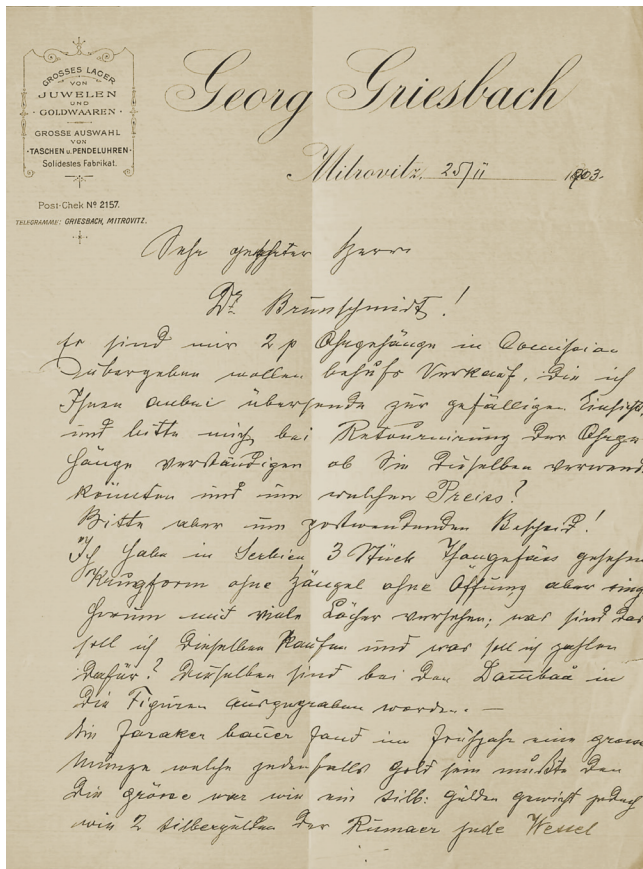 GROSSES LAGER
VON
JUWELEN
UND
GOLDWAAREN
GROSSE AUSWAHL
VON
TASCHEN u. PENDELUHREN
Solidestes Fabrikat.
Post-Chek Nº 2157.
TELEGRAMME: GRIESBACH, MITROVITZ.
Georg Griesbach
Mitrovitz, 25/II 1903.
Sehr geehrter Herr
Dr. Brunschmidt!
Es sind mir 2 p Ohrgehänge in Comission
übergeben wollen behufs Verkauf. Die ich
Ihnen anbei übersende zur gefälligen Einsicht,
und bitte mich bei Retournirung der Ohrge
hänge verständigen ob Sie dieselben verwend
könnten und um welchen Preiss?
Bitte aber um postwendenden Bescheid!
Ich habe in Serbien 3 Stück Thongefäss gesehen
Krugform ohne Hängel ohne Öffnung aber ring
herum mit viele Löcher versehen, was sind das
soll ich dieselben kaufen und was soll ich zahlen
dafür? Dieselben sind bei den in
die Figuren ausgegraben worden. —
Ein Jaraker bauer fand im Frühjahr eine grosse
Münze welche jedenfalls Gold sein müßte den
die grösse war wie ein silb: Gulden gewicht jedoch
wie 2 silbergulden der Rumaer jude Wessel